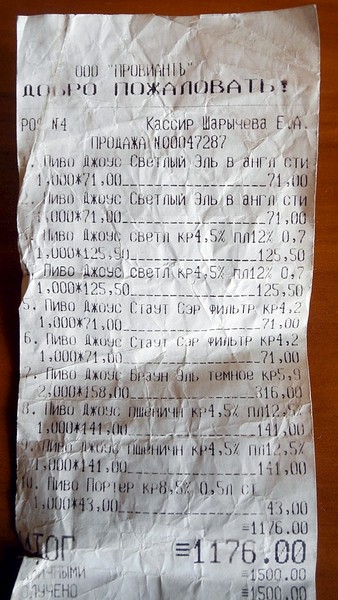 ООО "ПРОВИАНТЪ"
ДОБРО ПОЖАЛОВАТЬ!
POS N4 Кассир Шарычева Е.А.
ПРОДАЖА N00047287
. Пиво Джоус Светлый Эль в англ сти
1,000*71,00 71,00
. Пиво Джоус Светлый Эль в англ сти
1,000*71,00 71,00
. Пиво Джоус светл кр4,5% пл12% 0,7
1,000*125,50 125,50
. Пиво Джоус светл кр4,5% пл12% 0,7
1,000*125,50 125,50
5. Пиво Джоус Стаут Сэр фильтр кр4,2
1,000*71,00 71,00
6. Пиво Джоус Стаут Сэр фильтр кр4,2
1,000*71,00 71,00
. Пиво Джоус Браун Эль темное кр5,9
2,000*158,00 316,00
8. Пиво Джоус Пшеничн кр4,5% пл12,5%
1,000*141,00 141,00
. Пиво Джоус Пшеничн кр4,5% пл12,5%
1,000*141,00 141,00
10. Пиво Портер кр8,5% 0,5л ст
1,000*43,00 43,00
=1176.00
ИТОГ =1176.00
НАЛИЧНЫМИ =1500.00
ПОЛУЧЕНО =1500.00